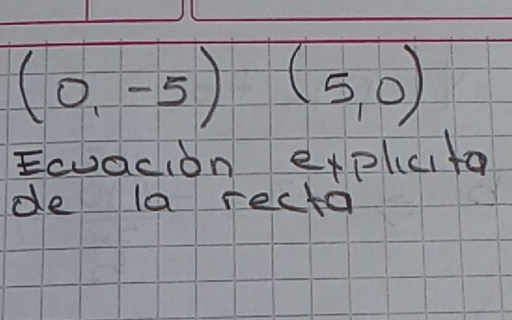 (0, -5) (5,0)
Ecuación explicita
de la recta